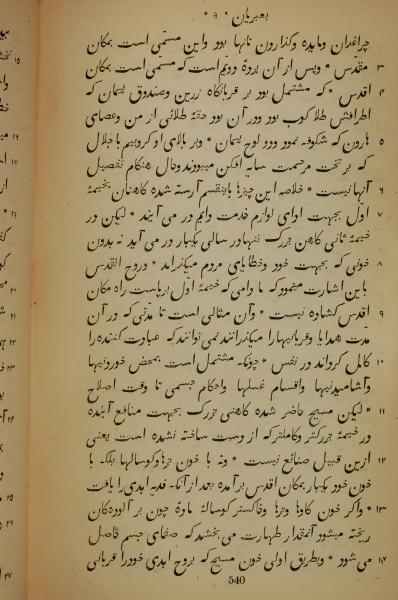 بعبریان * ۹ *
چراغدان ومایده وکذاردن نانها بود واین مستمی است بمکان
۳ مقدّس * وپس از آن پردهٔ دویّم است که مستمی است بمکان
۴ اقدس * که مشتمل بود بر قربانکاه زرین وصندوق پیمان که
اطرافش طلا کوب بود ودر آن بود حقهٔ طلائی از من وعصای
۵ هارون که شکوفه نمود ولوح پیمان * وبر بالای او کروبیم با جلال
که بر تخت مرحمت سایه افکن میبودند وحال هنکام تفصیل
۶ آنها نیست * خلاصه این چیزها باینقسم آرسته شده کاهنان بخیمهٔ
۷ اوّل بجهت ادای لوازم خدمت دایم در می آیند * لیکن در
خیمهٔ ثانی کاهن بزرک تنها در سالی یکبار در می آید نه بدون
۸ خونی که بجهت خود وخطایای مردم میکذراند * وروح القدس
باین اشارت مینمود که ما دامی که خیمهٔ اوّل برپاست راه مکان
۹ اقدس کشاده نیست * وآن مثالی است تا مدّتی که در آن
مدّت هدایا وقربانیها را میکذرانند نمی توانند که عبادت کننده را
۱۰ کامل کرداند در نفس * چونکه مشتمل است بمحض خوردنیها
وآشامیدنیها واقسام غسلها واحکام جسمی تا وقت اصلاح
۱۱ * لیکن مسیح حاضر شده کاهنی بزرک بجهت منافع آینده
در خیمهٔ بزرکتر وکاملتر که از دست ساخته نشده است یعنی
۱۲ ازین قبیل صنائع نیست * ونه با خون بزها وکوسالها بلکه با
خون خود یکبار بمکان اقدس بر آمده بعد از آنکه فدیه ابدی را یافت
۱۳ * واکر خون کاوها وبزها وخاکستر کوسالهٔ مادهٔ چون بر آلوده کان
ریخته میشود آنمقدار طهارت می بخشد که صفای جسم حاصل
۱۴ می شود * وبطریق اولی خون مسیح که بروح ابدی خود را قربانی
540